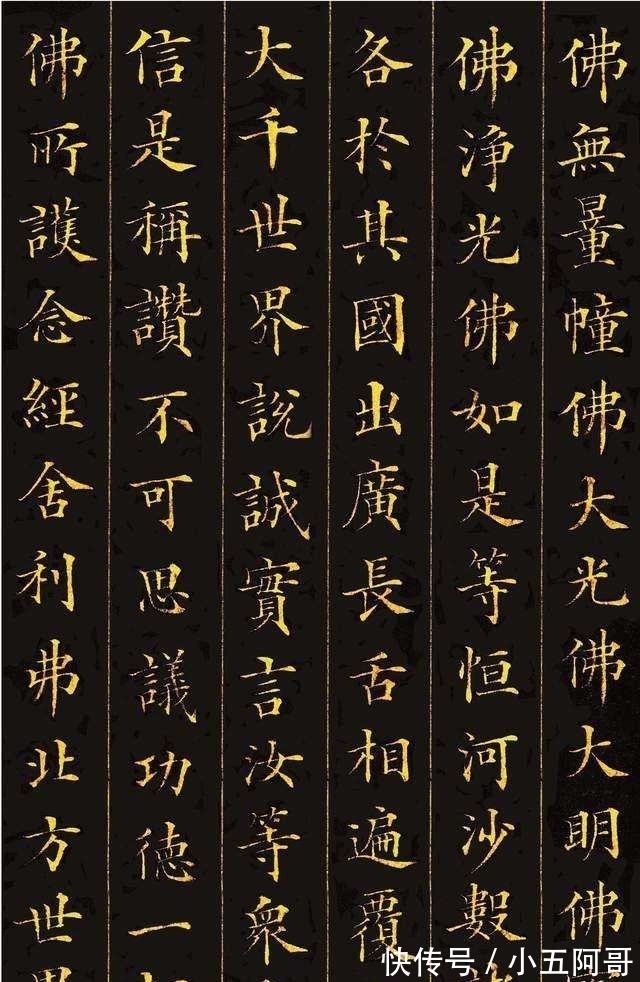 佛無量幢佛大光佛大明佛
佛淨光佛如是等恒河沙數
各於其國出廣長舌相遍覆
大千世界說誠實言汝等衆
信是稱讚不可思議功德一
佛所護念經舍利弗北方世
快传号 / 小五阿哥